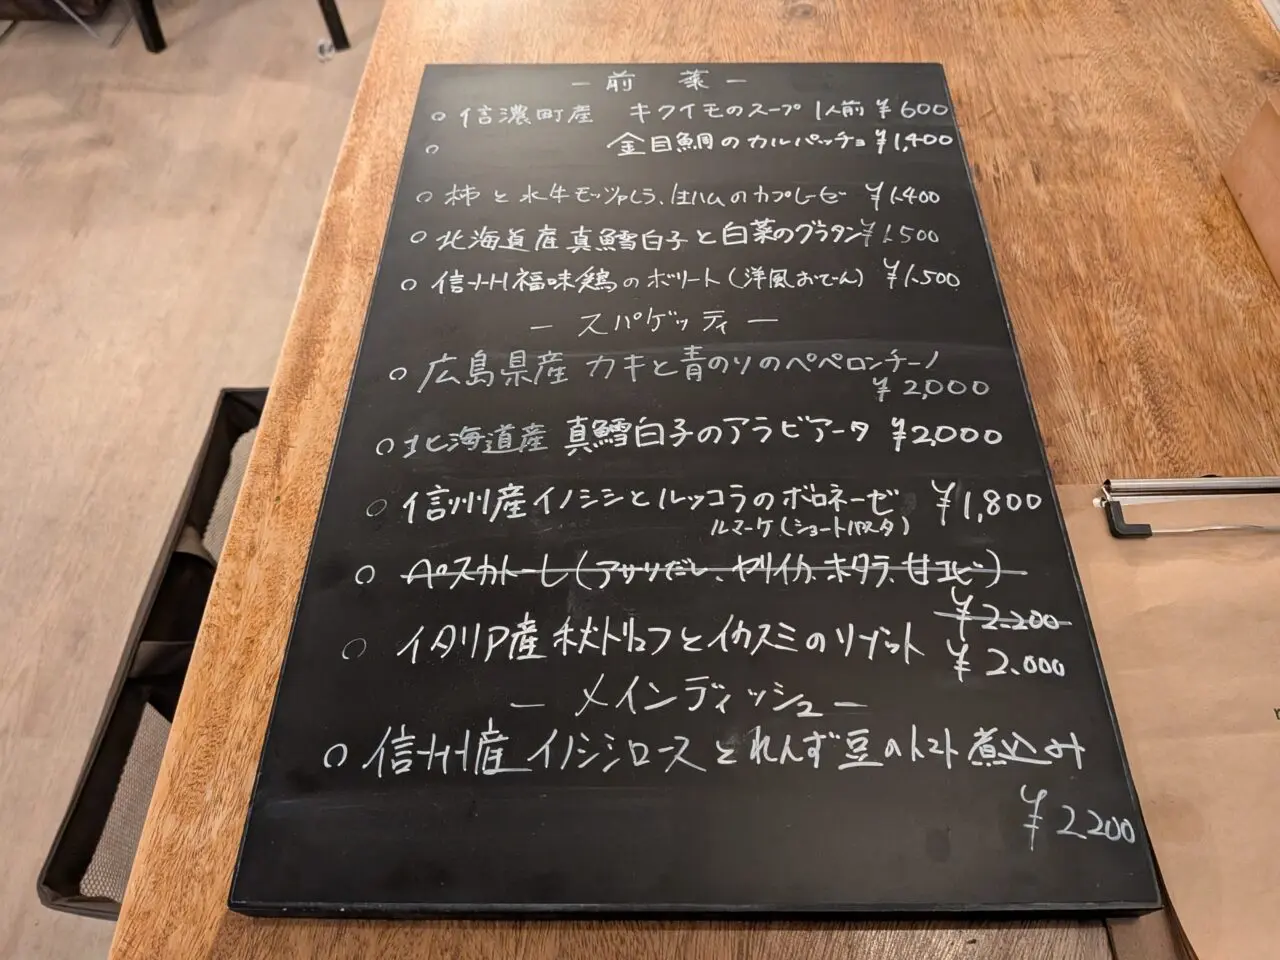 — 前 菜 —
○ 信濃町産 キクイモのスープ 1人前 ¥600
○ 金目鯛のカルパッチョ ¥1,400
○ 柿と水牛モッツァレラ、生ハムのカプレーゼ ¥1,400
○ 北海道産真鱈白子と白菜のグラタン ¥1,500
○ 信州福味鶏のボリート(洋風おでん) ¥1,500
— スパゲッティ —
○ 広島県産 カキと青のりのペペロンチーノ
¥2,000
○ 北海道産 真鱈白子のアラビアータ ¥2,000
○ 信州産イノシシとルッコラのボロネーゼ ¥1,800
ルマーケ(ショートパスタ)
○ ペスカトーレ(アサリだし、ヤリイカ、ホタテ、甘エビ)
¥2,200
○ イタリア産秋トリュフとイカスミのリゾット ¥2,000
— メインディッシュ —
○ 信州産 イノシシロースとれんず豆のトマト煮込み
¥2,200